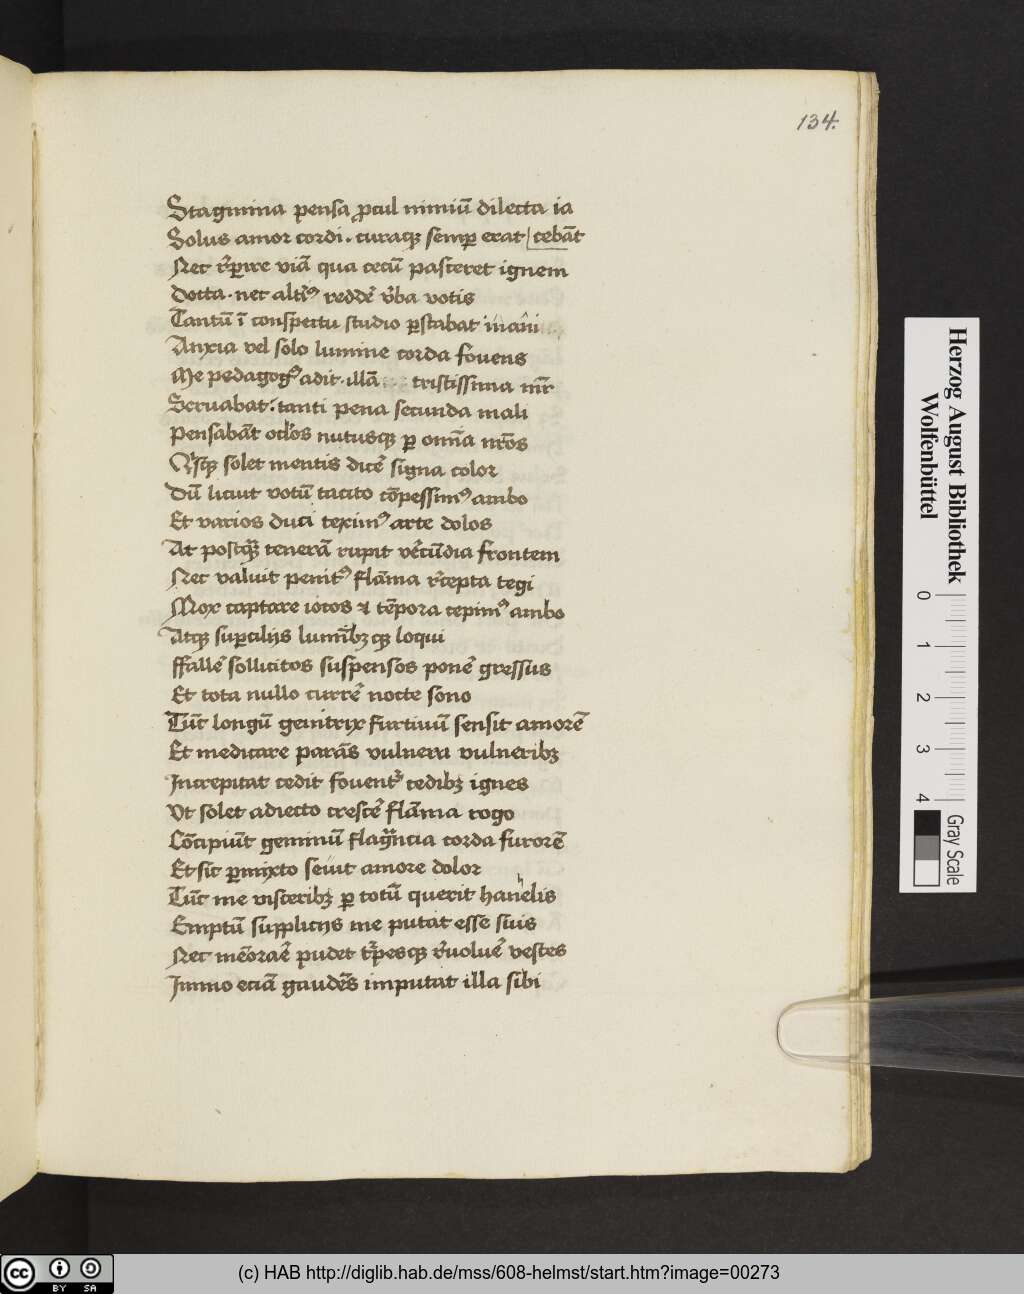 134.
Stagmina pensa ꝓcul nimiū dilecta ia
Solus amor cordi · curaqꝫ semꝑ erat [cebāt
Nec r̄ꝑire viā qua cecū pasceret ignem
Docta · nec alt̄iꝰ reddē v̄ba votis
Tantū ī conspectu studio ꝑstabat inani
Anxia vel solo lumine corda fovens
Me pedagogꝰ adit · illā tristissima mr̄
Seruabat : tanti pena secunda mali
Pensabāt oclōs nutusqꝫ ꝑ omīa nrōs
Qīsqꝫ solet mentis dicē signa color
Dū licuit votū tacito cōpessimꝰ ambo
Et varios duci teximꝰ arte dolos
At postqꝫ̄ tenerā rupit vēcūdia frontem
Nec valuit penitꝰ flāma r̄cepta tegi
Mox captare iocos ⁊ tēpora cepimꝰ ambo
Atqꝫ suꝑcilijs lumībꝫqꝫ loqui
ffallē sollicitos suspensos ponē gressus
Et tota nullo currē nocte sono
Tūc longū genitrix furtiuū sensit amorē
Et medicare parās vulnera vulneribꝫ
Increpitat cedit fouent̄ cedibꝫ ignes
Vt solet adiecto crescē flāma rogo
Cōcipiūt geminū flagrāncia corda furorē
Et sic ꝑmixto seuit amore dolor
Tūc me visceribꝫ ꝑ totū querit hanelis
h
Emptū supplicijs me putat esse suis
Nec mēoraē pudet t̄pesqꝫ r̄uoluē vestes
Immo eciā gaudēs imputat illa sibi
Herzog August Bibliothek
Wolfenbüttel
0 1 2 3 4
Gray Scale
cc BY SA
(c) HAB http://diglib.hab.de/mss/608-helmst/start.htm?image=00273